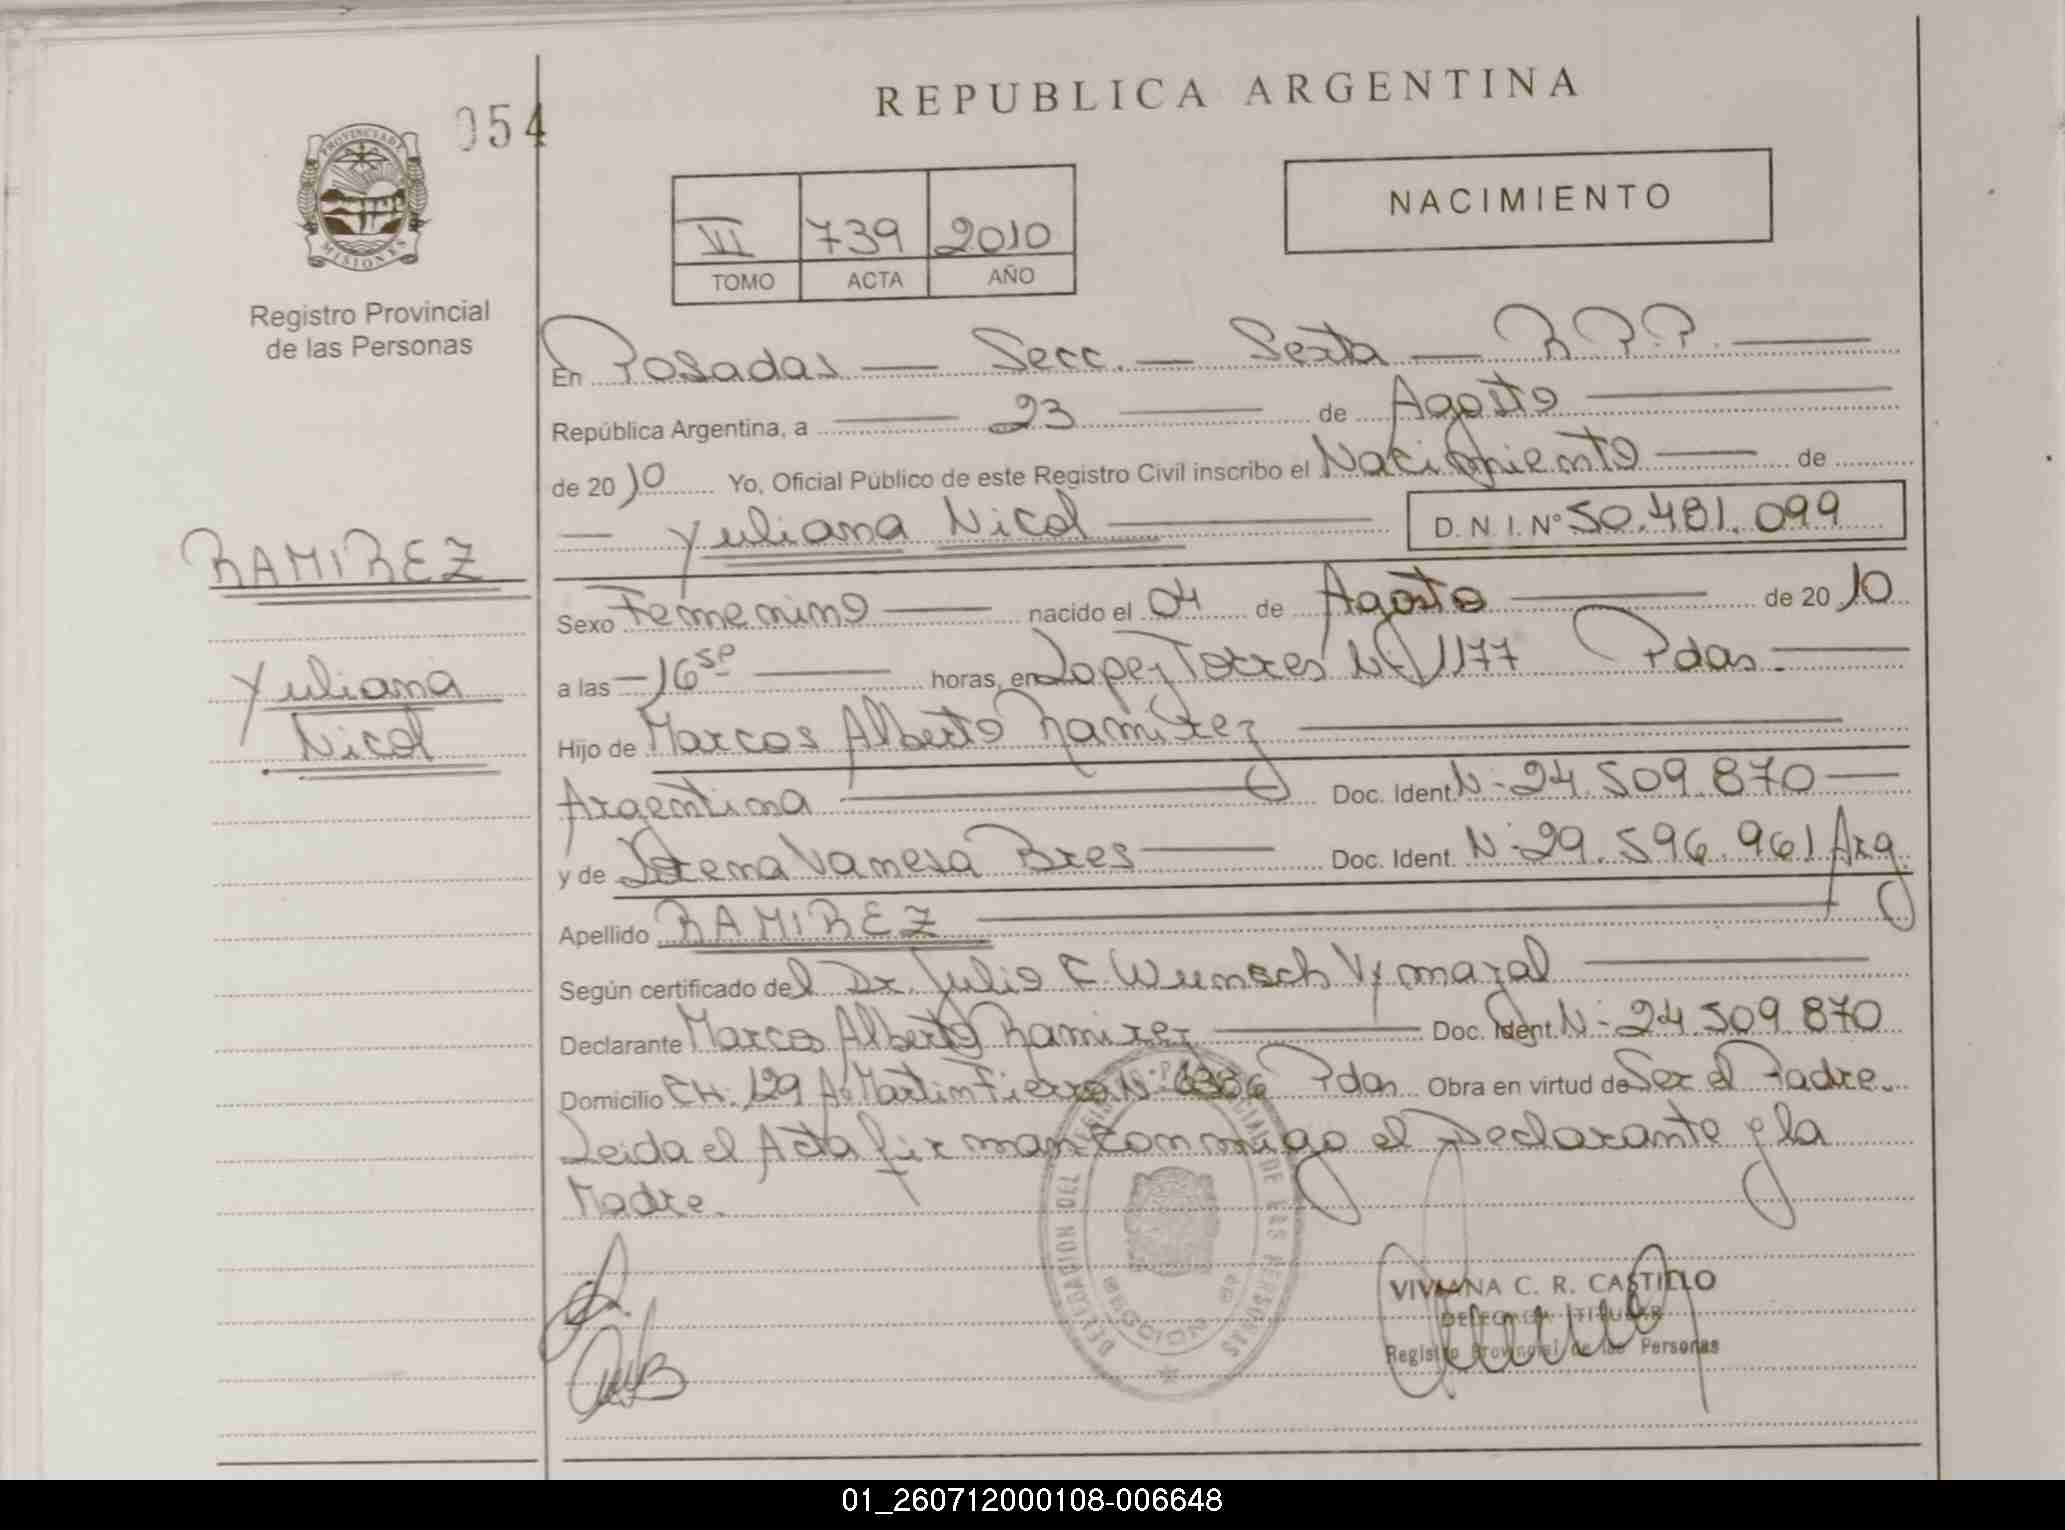 REPUBLICA ARGENTINA
054
PROVINCIA DE
MISIONES
Registro Provincial
de las Personas
VI 739 2010
TOMO ACTA AÑO
NACIMIENTO
En Posadas — Secc. — Sexta — R.P.P. —
República Argentina, a — 23 — de Agosto —
de 2010 Yo, Oficial Público de este Registro Civil inscribo el Nacimiento — de
— Yuliana Nicol — D.N.I.Nº 50.481.099
RAMIREZ
Yuliana
Nicol
Sexo Femenino — nacido el 04 de Agosto — de 2010
a las — 16 — horas, en Lopez Torres Nº 1177 Pdas. —
Hijo de Marcos Alberto Ramirez —
Argentina — Doc. Ident. Nº 24.509.870 —
y de Vanesa Bres — Doc. Ident. Nº 29.596.961 Arg.
Apellido RAMIREZ —
Según certificado del Dr. Julio C. Wunsch Vymazal —
Declarante Marcos Alberto Ramirez — Doc. Ident. Nº 24.509.870
Domicilio CH. 129 Martin Fierro Nº Pdas. Obra en virtud de Ser el Padre.
Leida el Acta firman conmigo el Declarante y la
Madre.
DELEGACION DEL REGISTRO PROVINCIAL DE LAS PERSONAS
VIVIANA C. R. CASTILLO
DELEGADA TITULAR
Registro Provincial de las Personas
01_260712000108-006648